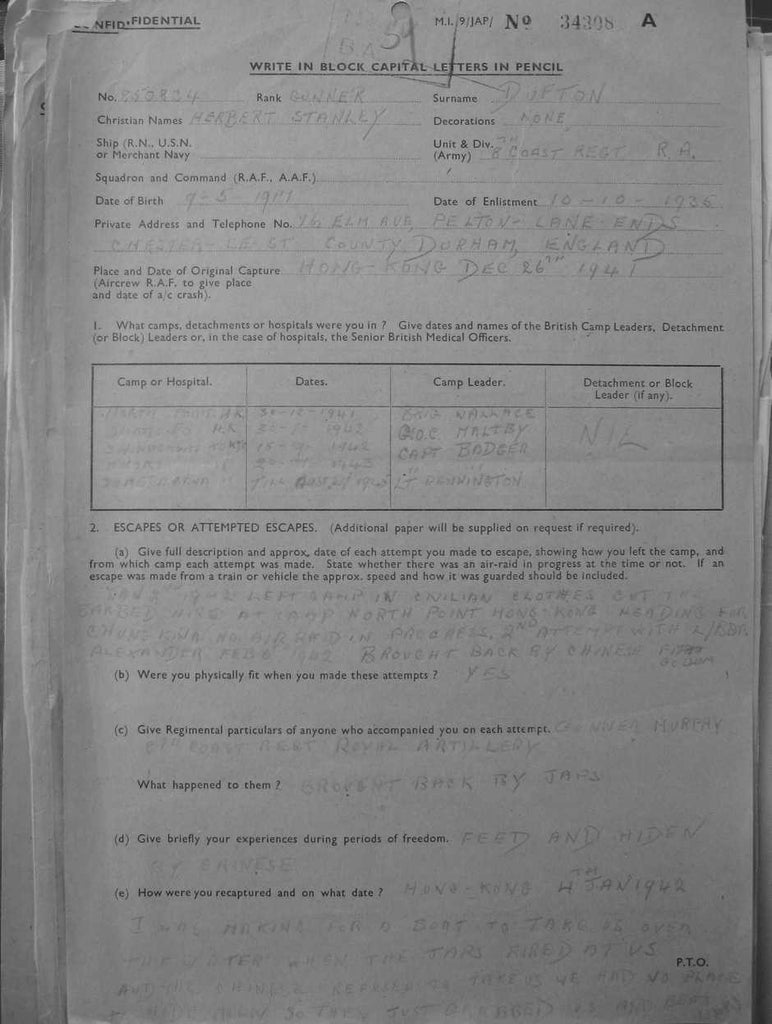 CONFIDENTIAL
M.I./9/JAP/ No 34398 A
WRITE IN BLOCK CAPITAL LETTERS IN PENCIL
No. 850824 Rank GUNNER Surname DUFTON
Christian Names HERBERT STANLEY Decorations NONE
Ship (R.N., U.S.N. or Merchant Navy
Unit & Div. (Army) 8TH COAST REGT R.A.
Squadron and Command (R.A.F., A.A.F.)
Date of Birth 9-5-19 Date of Enlistment 10-10-1936
Private Address and Telephone No. ELM AVE, PELTON-LANE-ENDS
CHESTER-LE-ST COUNTY DURHAM, ENGLAND
Place and Date of Original Capture HONG-KONG DEC 26TH 1941
(Aircrew R.A.F. to give place
and date of a/c crash).
1. What camps, detachments or hospitals were you in ? Give dates and names of the British Camp Leaders, Detachment
(or Block) Leaders or, in the case of hospitals, the Senior British Medical Officers.
Camp or Hospital. Dates. Camp Leader. Detachment or Block
Leader (if any).
NORTH POINT H.K 30-12-1941 BRIG WALLACE
H.K 1942 G.O.C. MALTBY NIL
TOKYO 15-9-1942 CAPT BADGER
1943
TILL AUG 1945 LT PENNINGTON
2. ESCAPES OR ATTEMPTED ESCAPES. (Additional paper will be supplied on request if required).
(a) Give full description and approx. date of each attempt you made to escape, showing how you left the camp, and
from which camp each attempt was made. State whether there was an air-raid in progress at the time or not. If an
escape was made from a train or vehicle the approx. speed and how it was guarded should be included.
1942 LEFT CAMP IN CIVILIAN CLOTHES CUT THE
BARBED WIRE AT CAMP NORTH POINT HONG-KONG HEADING FOR
CHUNG KING. NO AIR RAID IN PROGRESS. 2ND ATTEMPT WITH L/BDR
ALEXANDER FEB 6 1942 BROUGHT BACK BY CHINESE
(b) Were you physically fit when you made these attempts ? YES
(c) Give Regimental particulars of anyone who accompanied you on each attempt. GUNNER MURPHY
8TH COAST REGT ROYAL ARTILLERY
What happened to them ? BROUGHT BACK BY JAPS
(d) Give briefly your experiences during periods of freedom. FEED AND HIDEN
BY CHINESE
(e) How were you recaptured and on what date ? HONG-KONG 4TH JAN 1942
I WAS MAKING FOR A BOAT TO TAKE US OVER
THE WATER WHEN THE JAPS FIRED AT US
P.T.O.
AND THE CHINESE REFUSED TO TAKE US WE HAD NO PLACE
SO THEY JUST GRABBED US AND